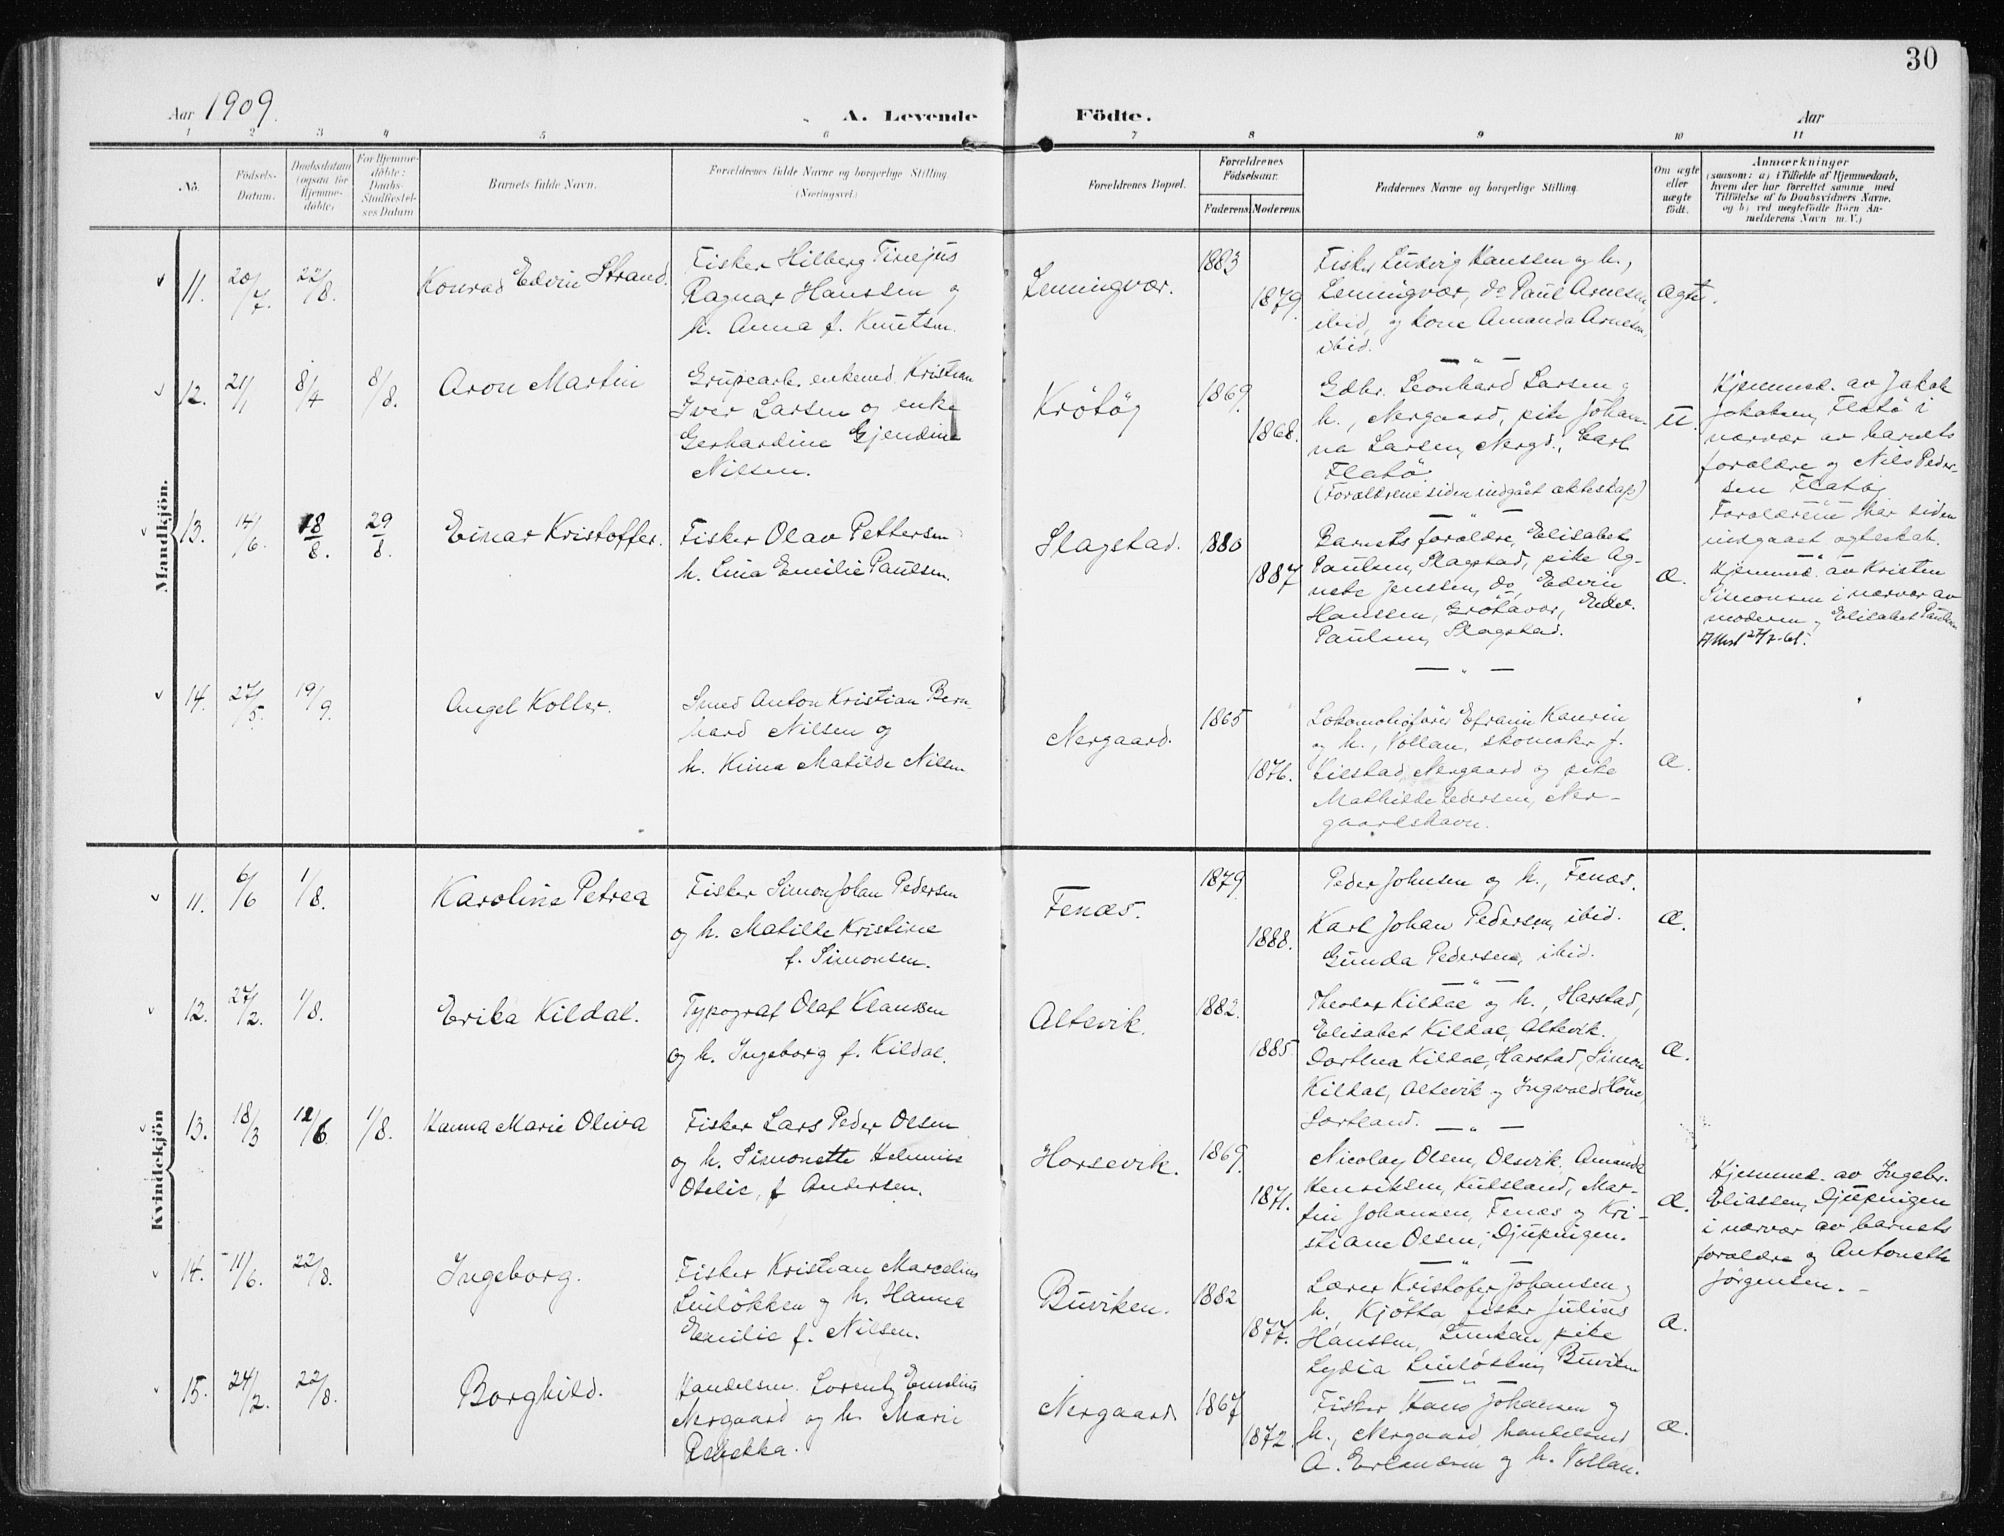 30
Aar 1909.
A. Levende Födte.
Aar
1 2 3 4 5 6 7 8 9 10 11
No.
Födsels-
Datum.
Daabsdatum
(ogsaa for
Hjemme-
döbte)
For Hjemme-
döbte:
Daabs-
Stadfestel-
ses Datum
Barnets fulde Navn.
Forældrenes fulde Navne og borgerlige Stilling
(Næringsvei.)
Forældrenes Bopæl.
Forældrenes
Födselsaar.
Faderens. Moderens.
Faddernes Navne og borgerlige Stilling.
Om ægte
eller
uægte
födt.
Anmærkninger
(saasom: a) i Tilfælde af Hjemmedaab,
hvem der har forrettet samme med
Tilföielse af to Daabsvidners Navne,
og b) ved uægtefödte Börn An-
melderens Navn m. V.)
Mandkjön.
11.
20/7
22/8.
Konrad Edvin Strand.
Fisker Hilberg Tinejus
Ragnar Hanssen og
h. Anna f. Knutsen.
Lemingvær.
1883
1879.
Fisker Ludvig Hanssen og h.,
Lemingvær, do Paul Arnesen,
ibid, og kone Amanda Arnesen,
ibid.
ægte.
12.
21/1
8/4
8/8.
Aron Martin
Grupearb. enkemd. Kristian
Iver Larsen og enke
Gerhardine Gjendine
Nilsen.
Krötöy
1869
1868.
Gdbr. Leonhard Larsen og
h., Nergaard, pike Johan-
na Larsen, Nergd., Carl
Flatö.
(Forældrene siden indgået ekteskap)
u.
Hjemmed. av Jakob
Jakobsen, Flatö i
nærvær av barnets
forældre og Nils Peder-
sen Flatöy
Forældrene har siden
indgaaet ægteskab.
13.
14/6.
18/8.
29/8.
Einar Kristoffer.
Fisker Olav Pettersen
h. Lina Emilie Paulsen.
Slagstad.
1880
1887
Barnets forældre, Elisabet
Paulsen, Slagstad, pike Ag-
nete Jensen, do, Edvin
Hanssen, Grötavær, Edev.
Paulsen, Slagstad.
æ.
Hjemmed. av Kristen
Simonsen i nærvær av
moderen og Elisabet Paulsen
Attest 27/2-61.
14.
27/5.
19/9.
Angel Koller.
Smed Anton Kristian Bern-
hard Nilsen og
h. Kima Matilde Nilsen
Nergaard.
1865
1876.
Lokomobifører Efraim Hanrin
og h., Vollan, skomaker J.
Lilstad, Nergaard og pike
Mathilde Pedersen, Ner-
gaardshavn.
æ.
Kvindekjön
11.
6/6
1/8.
Karoline Petrea
Fisker Simon Johan Pedersen
og h. Matilde Kristine
f. Simonsen.
Fenæs.
1879
1888.
Peder Johnsen og h., Fenæs.
Karl Johan Pedersen, ibid.
Gunda Pedersen, ibid.
æ.
12.
27/2.
1/8.
Erika Kildal.
Typograf Olaf Klaussen
og h. Ingeborg f. Kildal.
Altevik.
1882.
1885.
Theodor Kildal og h., Harstad,
Elisabet Kildal, Altevik.
Dorthea Kildal, Harstad, Simon
Kildal, Altevik og Ingvald Höne,
Sortland.
æ.
13.
18/3
12/6
1/8.
Hanna Marie Oliva
Fisker Lars Peder Olsen
og h. Simonette Helmine
Otelie, f. Andersen.
Horsevik.
1869
1871.
Nicolay Olsen, Olsvik, Amanda
Henriksen, Kulsland, Mar-
tin Johansen, Fenæs og Kri-
stiane Olsen, Djupingen.
æ.
Hjemmed. av Ingebr.
Eliassen, Djupingen
i nærvær av barnets
forældre og Antoneth
Jörgensen.
14.
11/6.
22/8.
Ingeborg.
Fisker Kristian Marcelius
Linlökken og h. Hanna
Emilie f. Nilsen.
Buviken.
1882
1877.
Lærer Kristofer Johansen og
h., Kjötta, fisker Julius
Hanssen, Lunkan, pike
Lydia Linlökken, Buviken
æ.
15.
24/2.
22/8.
Borghild.
Handelsm. Lorentz Emelius
Nergaard og h. Marie
Rebekka.
Nergaard
1867
1872.
Fisker Hans Johansen og
h., Nergaard, handelsmd.
A. Erlandsen og h. Vollan.
æ.